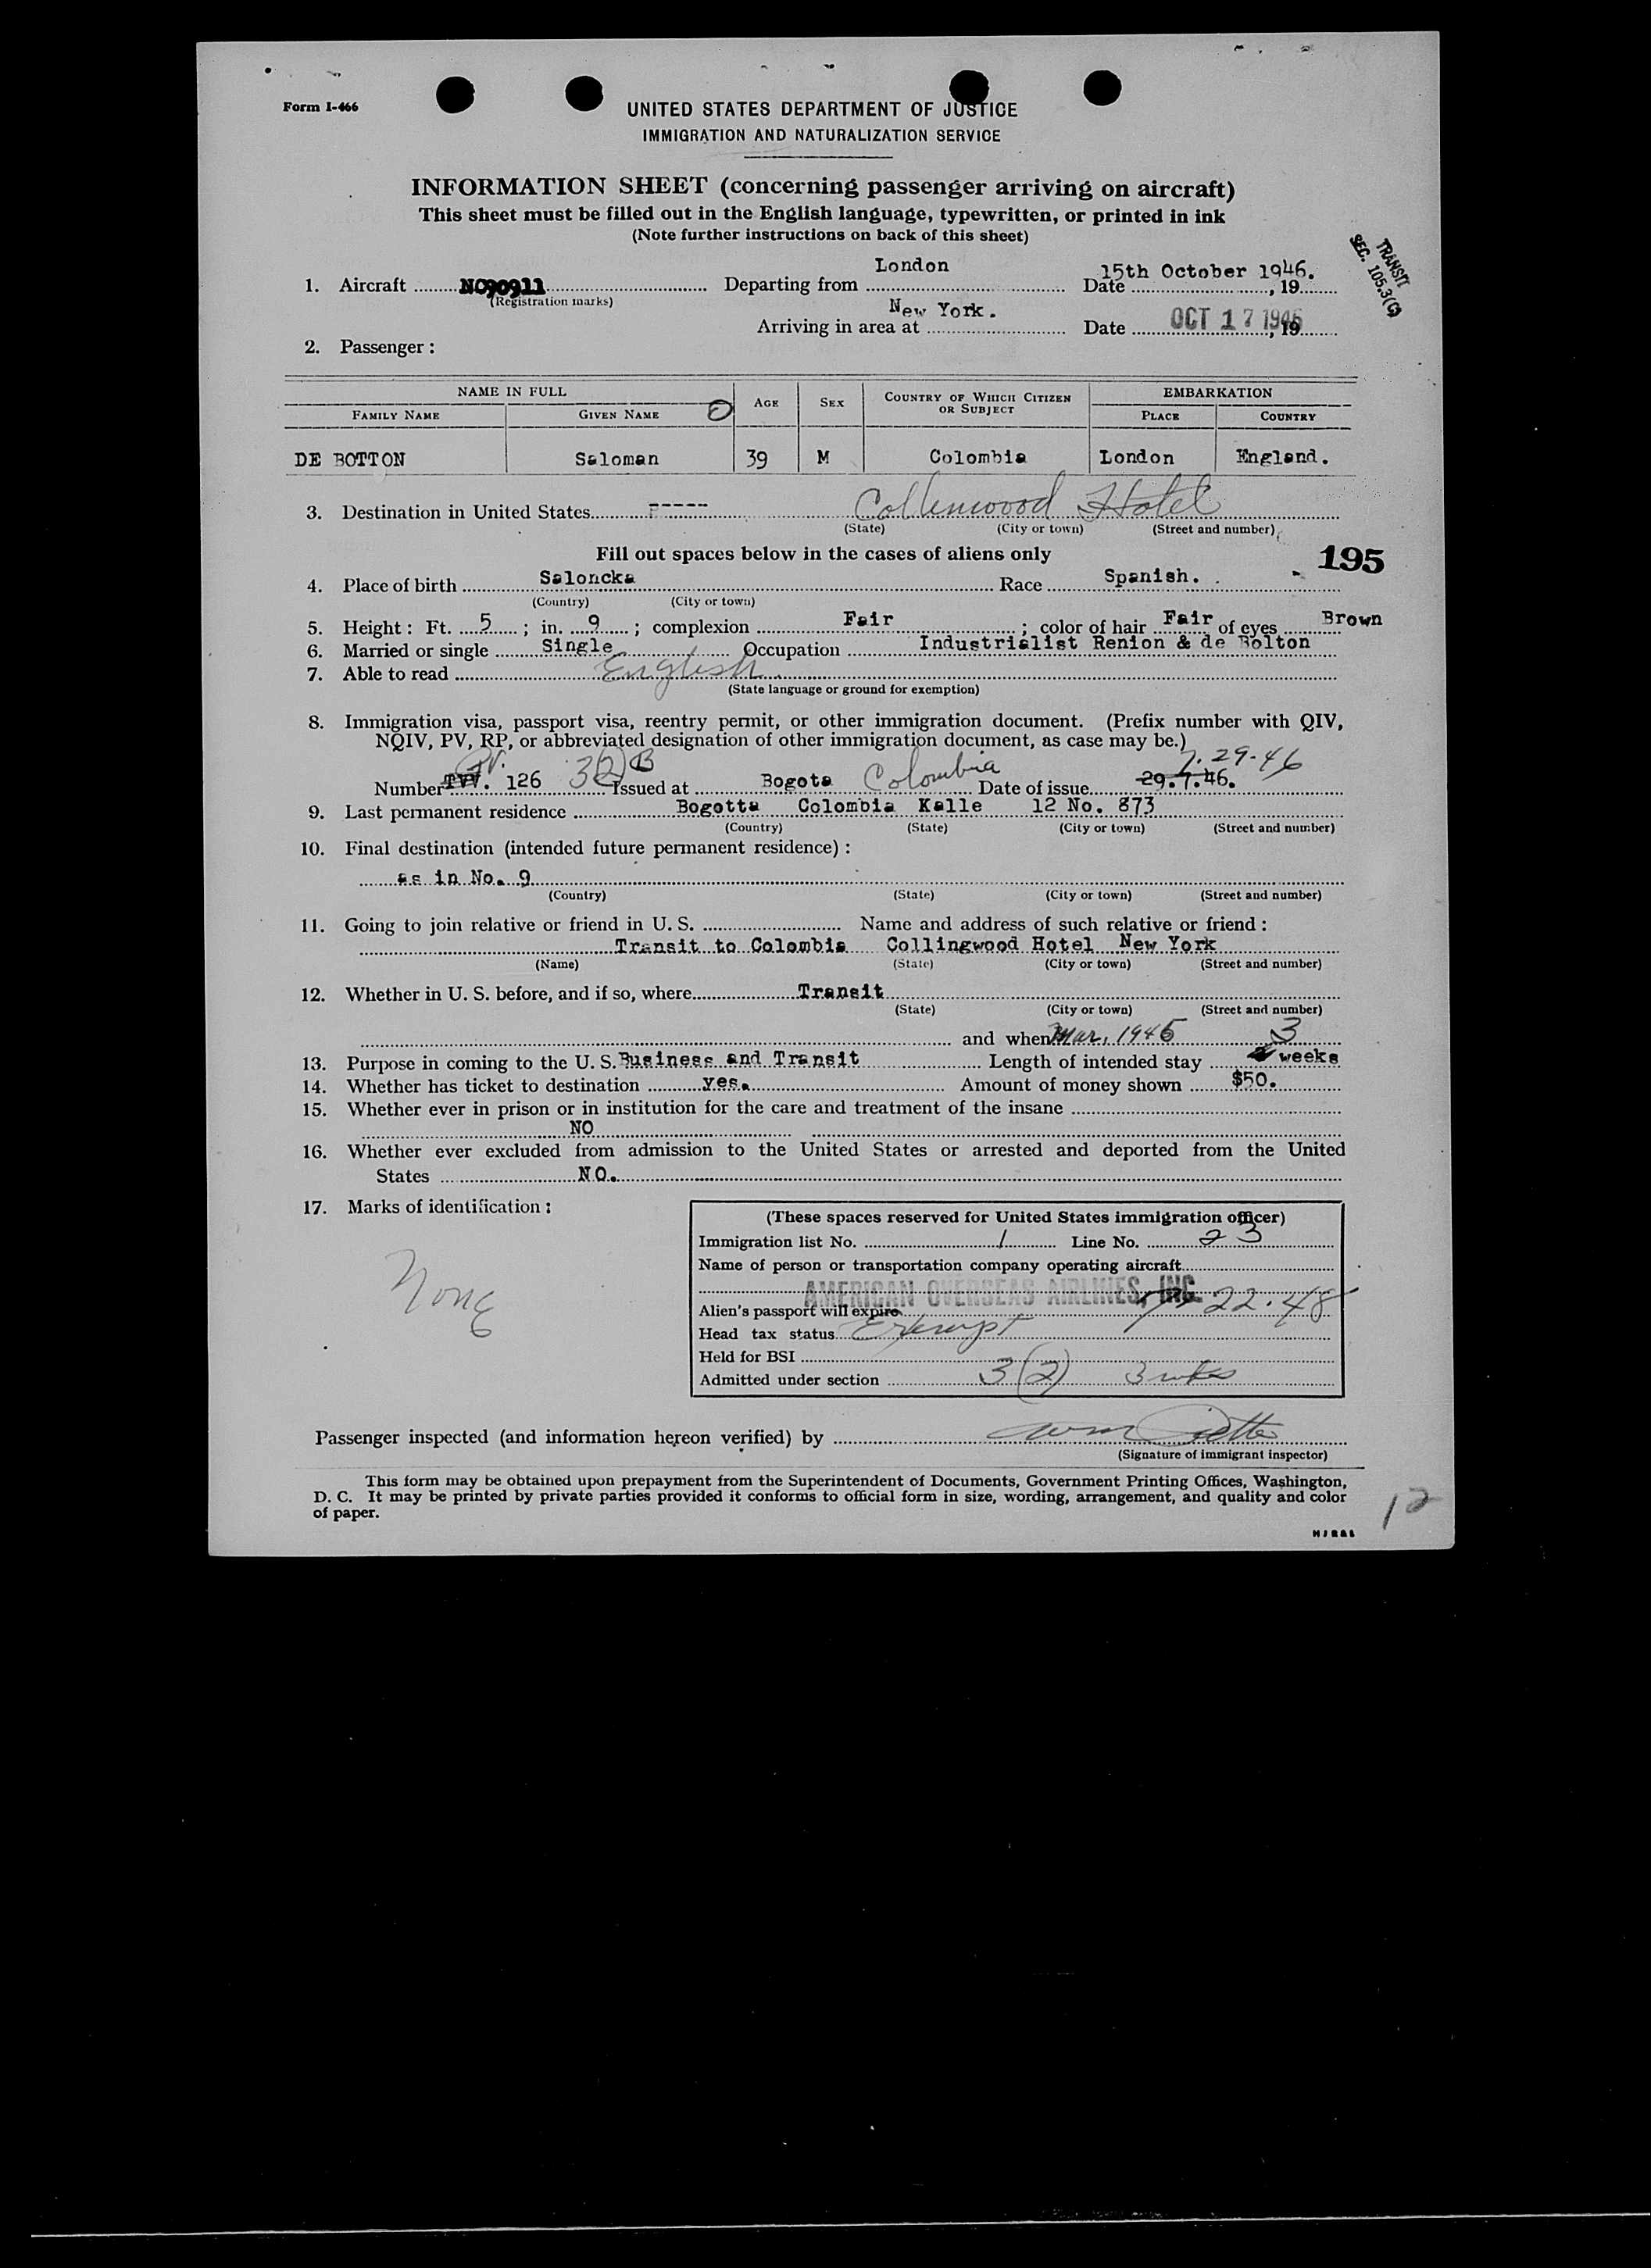 Form I-466
UNITED STATES DEPARTMENT OF JUSTICE
IMMIGRATION AND NATURALIZATION SERVICE
INFORMATION SHEET (concerning passenger arriving on aircraft)
This sheet must be filled out in the English language, typewritten, or printed in ink
(Note further instructions on back of this sheet)
TRANSIT
SEC. 105.3(C)
1. Aircraft NC90911 Departing from London Date 15th October 1946. , 19
(Registration marks)
Arriving in area at New York. Date OCT 17 1946 , 19
2. Passenger :
NAME IN FULL AGE SEX COUNTRY OF WHICH CITIZEN OR SUBJECT EMBARKATION
FAMILY NAME GIVEN NAME PLACE COUNTRY
DE BOTTON Saloman 39 M Colombia London England.
3. Destination in United States ----- Collenwood Hotel
(State) (City or town) (Street and number)
Fill out spaces below in the cases of aliens only
195
4. Place of birth Saloncka Race Spanish.
(Country) (City or town)
5. Height : Ft. 5 ; in. 9 ; complexion Fair ; color of hair Fair of eyes Brown
6. Married or single Single Occupation Industrialist Renion & de Bolton
7. Able to read English
(State language or ground for exemption)
8. Immigration visa, passport visa, reentry permit, or other immigration document. (Prefix number with QIV,
NQIV, PV, RP, or abbreviated designation of other immigration document, as case may be.)
7.29-46
Number TVV. PV. 126 3(2)B Issued at Bogota Colombia Date of issue 29.7.46.
9. Last permanent residence Bogotta Colombia Kalle 12 No. 873
(Country) (State) (City or town) (Street and number)
10. Final destination (intended future permanent residence) :
as in No. 9
(Country) (State) (City or town) (Street and number)
11. Going to join relative or friend in U. S. Name and address of such relative or friend :
Transit to Colombia Collingwood Hotel New York
(Name) (State) (City or town) (Street and number)
12. Whether in U. S. before, and if so, where Transit
(State) (City or town) (Street and number)
and when Mar. 1946
13. Purpose in coming to the U. S. Business and Transit Length of intended stay 3 weeks
14. Whether has ticket to destination yes. Amount of money shown $50.
15. Whether ever in prison or in institution for the care and treatment of the insane
NO
16. Whether ever excluded from admission to the United States or arrested and deported from the United
States NO.
17. Marks of identification :
None
(These spaces reserved for United States immigration officer)
Immigration list No. 1 Line No. 23
Name of person or transportation company operating aircraft
AMERICAN OVERSEAS AIRLINES, INC.
Alien's passport will expire 22.48
Head tax status Exempt
Held for BSI
Admitted under section 3(2) 3 wks
Passenger inspected (and information hereon verified) by
(Signature of immigrant inspector)
This form may be obtained upon prepayment from the Superintendent of Documents, Government Printing Offices, Washington,
D. C. It may be printed by private parties provided it conforms to official form in size, wording, arrangement, and quality and color
of paper.
12